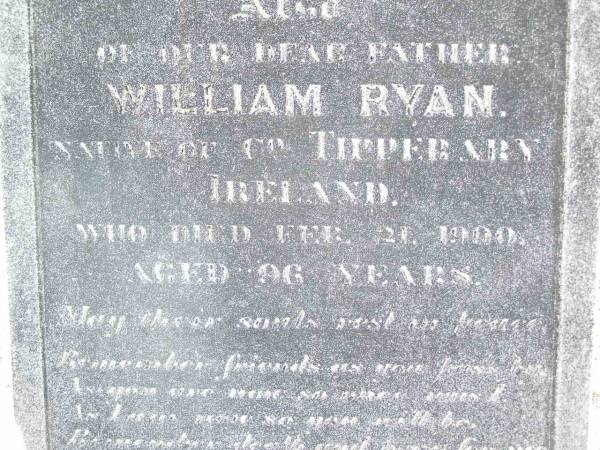 Also
OF OUR DEAR FATHER.
WILLIAM RYAN.
NATIVE OF Co. TIPPERARY
IRELAND.
WHO DIED FEB. 21. 1900.
AGED 96 YEARS.
May their souls rest in peace.
Remember friends as you pass by,
As you are now so once was I
As I am now so you will be,
Remember death and pray for me